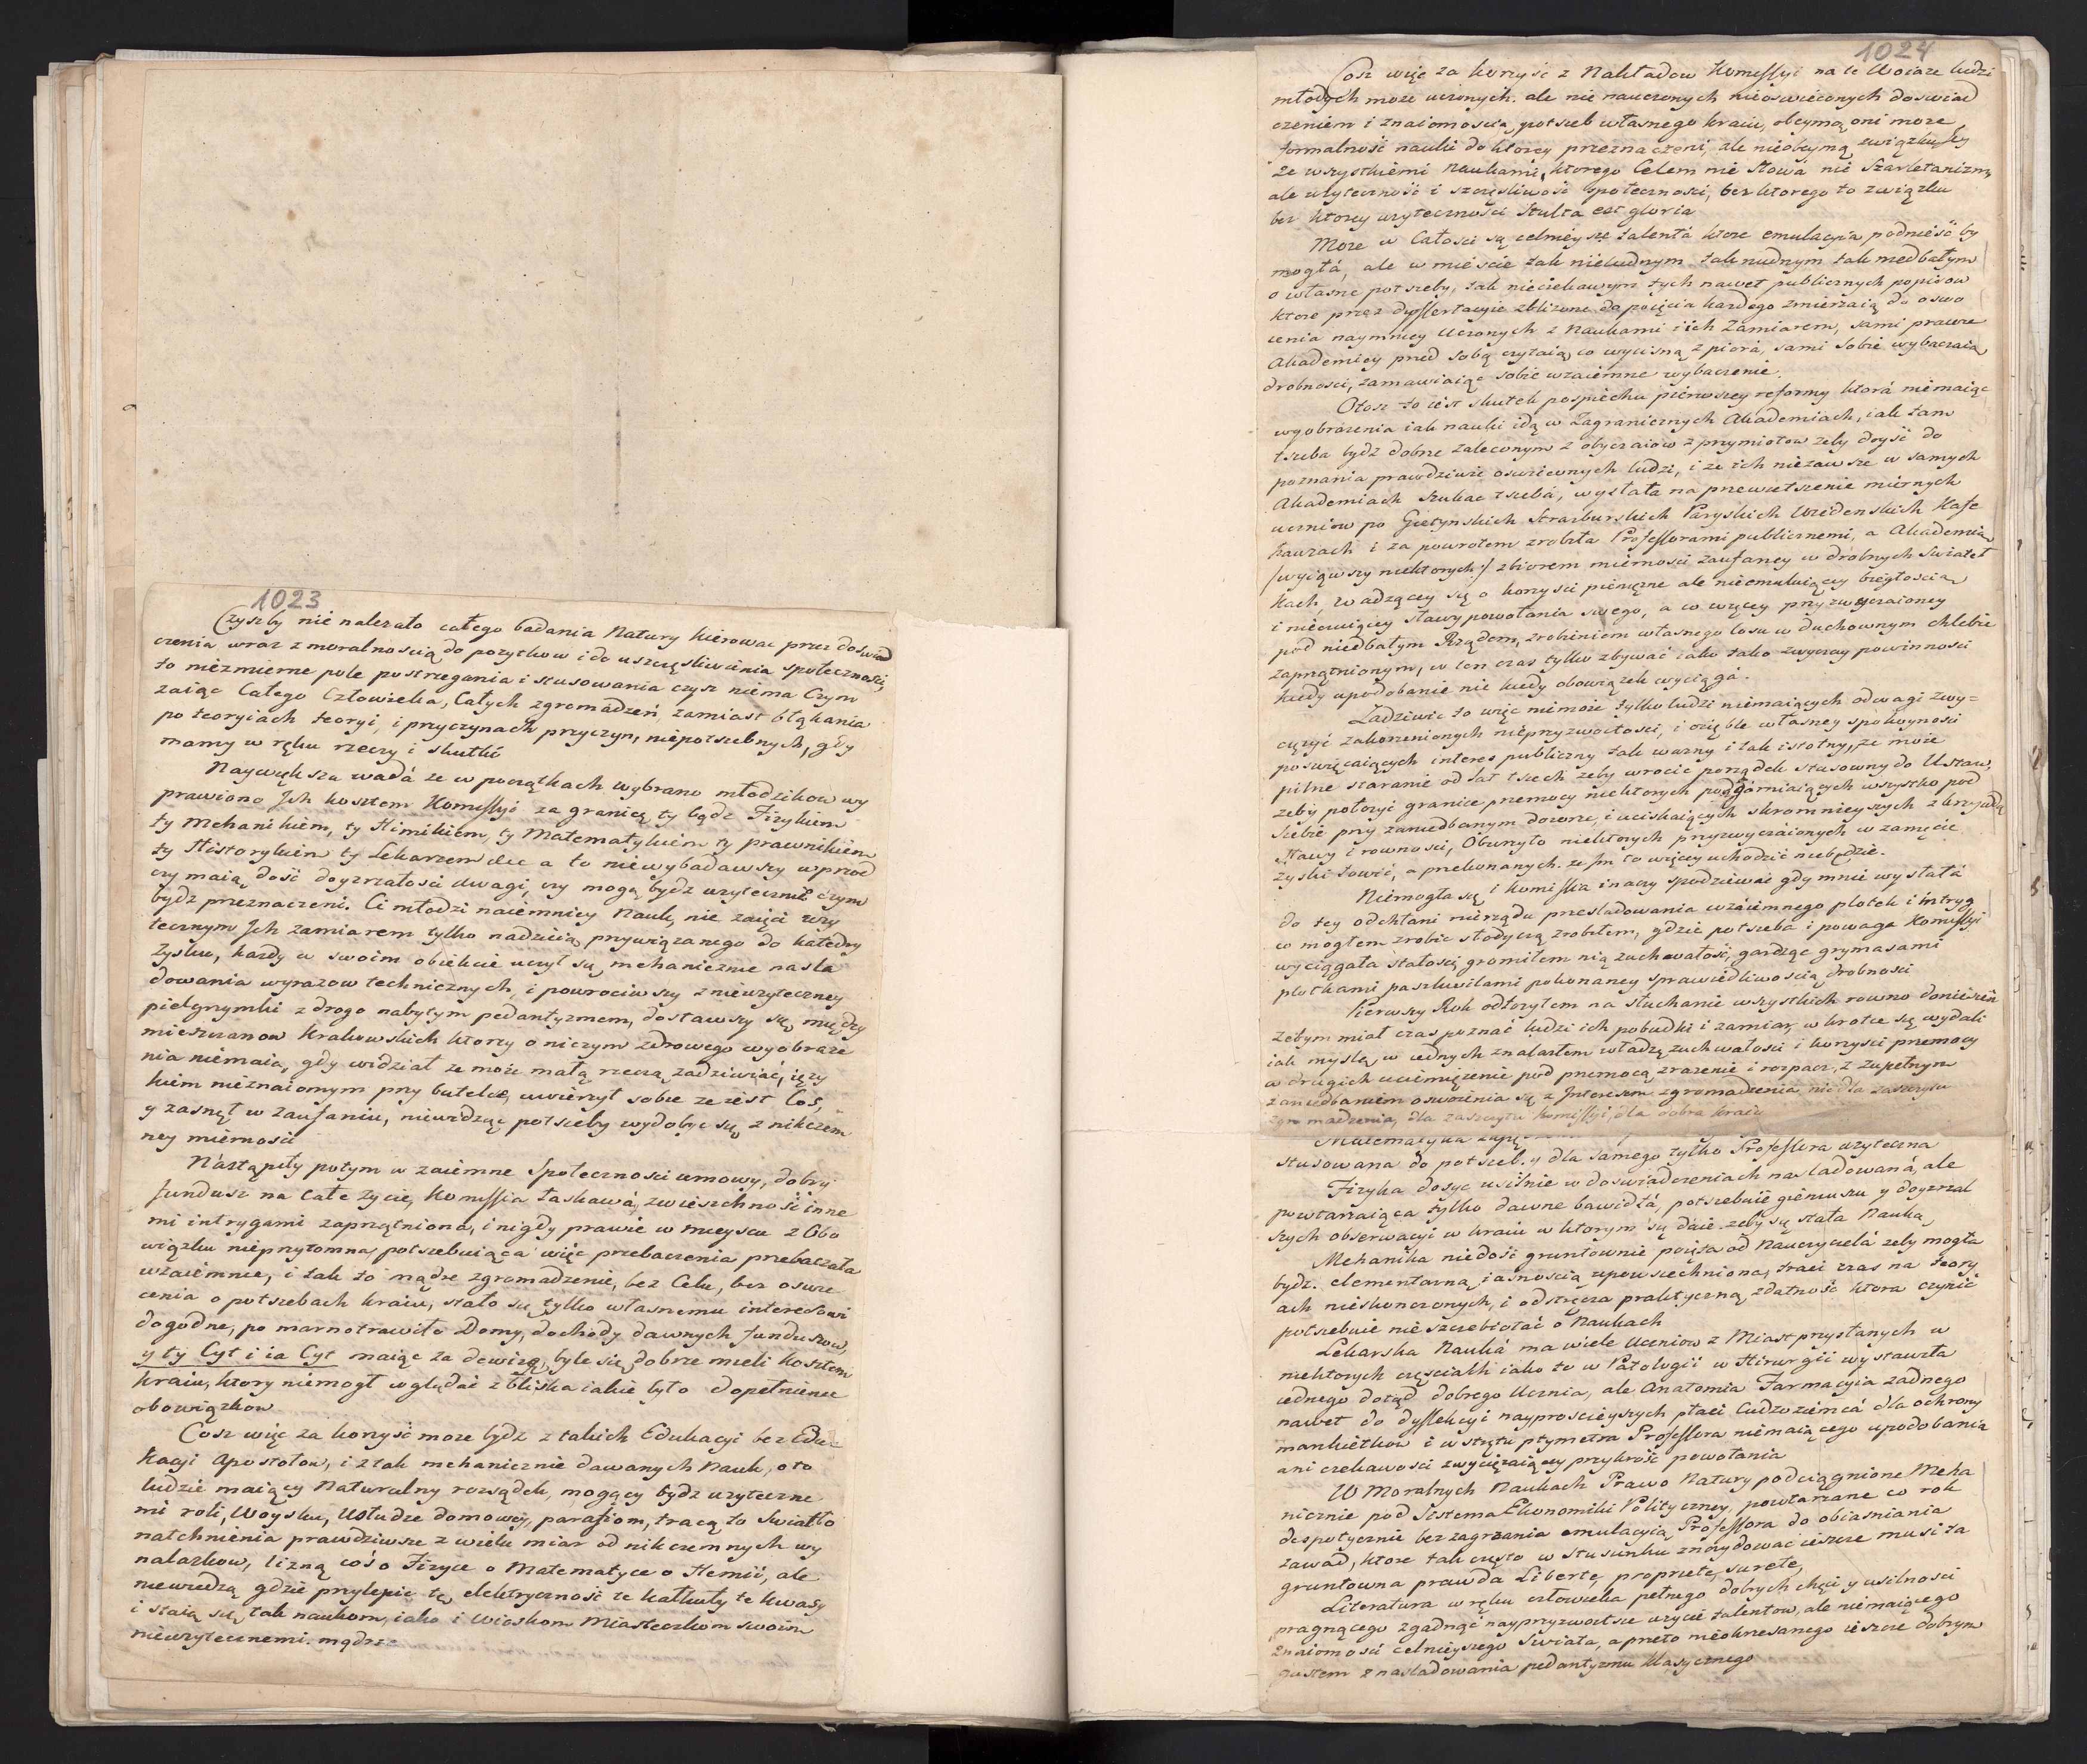 1023
Czyszby nie nalezało całego badania Natury kierowac przez doswiad
czenia wraz z moralnością do pozytkow i do uszczęsliwienia społeczności,
to niezmierne pole postrzegania i stusowania czysz niema Czym
zaiąc Całego Człowieka, Całych zgromadzeń, zamiast błąkania
po teoryiach teoryi, i przyczynach przyczyn, niepotrzebnych, gdy
mamy w ręku rzeczy i skutki
Naywiększa wadá ze w początkach wybrano młodzikow wy
prawiono Ich kosztem Komissyi za granicę, ty bądz Fizykiem
ty Mehanikiem, ty Himikiem, ty Matematykiem ty prawnikiem
ty Historykiem ty Lekarzem etc a to niewybadawszy wprzod
czy maią dość doyrzałości uwagi, czy mogą bydz uzyteczni czym
bydz przeznaczeni. Ci młodzi naiemnicy Nauk, nie zaięci uzy
tecznym Ich zamiarem tylko nadzieią przywiązanego do katedry
Zysku, kazdy w swoim obiekcie uczył się mehanicznie nasla
dowania wyrazow technicznych, i powrociwszy z nieuzyteczney
pielgrzymki z drogo nabytym pedantyzmem, dostawszy się między
mieszczanow Krakowskich ktorzy o niczym zdrowego wyobraze
nia niemaią, gdy widział ze moze małą rzeczą zadziwiac, ięzy
kiem nieznaiomym przy butelce, uwierzył sobie ze iest Coś,
y zasnął w zaufaniu, niewidząc potrzeby wydobyc się z nikczem
ney miernosci
Nastąpiły potym wzaiemne Społeczności umowy, dobry
fundusz na całe zycie, Komissia łaskawá, zwierzchność inne
mi intrygami zaprzątniona, i nigdy prawie w mieyscu z Obo
wiązku nieprzytomna, potrzebuiąca więc przebaczenia przebaczała
wzaiemnie, i tak to mądre zgromadzenie, bez Celu, bez oswie
cenia o potrzebach kraiu, stało się tylko własnemu interesowi
dogodne, po marnotrawiło Domy, dochody dawnych funduszow,
y ty Cyt i ia Cyt maiąc za dewizę, byle się dobrze mieli kosztem
kraiu, ktory niemogł wglądać z bliska iakie było dopełnienie
obowiązkow
Cosz więc za korzyść moze bydz z takich Edukacyi bez Edu-
kacyi Apostołow, i z tak mehanicznie dawanych Nauk, oto
ludzie maiący Naturalny rozsądek, mogący bydz uzyteczne
mi roli, Woysku, Usłudze domowey, parafiom, tracą to Swiatło
natchnienia prawdziwsze z wielu miar od nikczemnych wy
nalazkow, lizną coś o Fizyce o Matematyce o Hemii, ale
niewiedzą gdzie przylepic tę elektryczność te kalkuły te kwasy
i staią się tak naukom, iako i Wioskom Miasteczkom swoim
nieuzytecznemi mądrze
1024
Cosz więc za korzyść z Nakładow Komissyi na te Woiaze ludzi
młodych moze uczonych. ale nie nauczonych nieoswieconych doswiad
czeniem i znaiomoscią potrzeb własnego kraiu, obeymą oni moze
formalność nauki do ktorey przeznaczeni, ale nieobeymą związku Iey
ze wszystkiemi Naukami, ktorego Celem nie Słowá nie Szarletanizm
ale uzyteczność i szczęsliwość społeczności, bez ktorego to związku
bez ktorey uzyteczności Stulta est gloria
Moze w Całości są celnieysze talentá ktore emulacyia podnieść by
mogłá, ale w mieście tak nieludnym tak nudnym tak niedbałym
o własne potrzeby, tak nieciekawym tych nawet publicznych popisow
ktore przez dyssertacyie zblizone do poięcia kazdego zmierzaią do oswo
ienia naymniey Uczonych z Naukami i ich Zamiarem, sami prawie
Akademicy przed sobą czytaią co wycisną z piorá, sami sobie wybaczaią
drobności, zamawiaiąc sobie wzaiemne wybaczenie.
Otosz to iest skutek pospiechu pierwszey reformy ktorá niemaiąc
wyobrazenia iak nauki idą w Zagranicznych Akademiach, iak tam
trzeba bydz dobrze zaleconym z obyczaiow z przymiotow zeby doyść do
poznania prawdziwie oswieconych ludzi, i ze ich niezawsze w samych
Akademiach Szukac trzebá, wysłała na przewietrzenie miernych
uczniow po Gietynskich Strazburskich Paryskich Wiedenskich Kafe
hauzach i za powrotem zrobiła Professorami publicznemi, a Akademią
/wyiąwszy niektorych:/ zbiorem mierności zaufaney w drobnych Swiateł
kach, wadzącey się o korzyści pienięzne ale nieemuluiącey biegłoscią
i nieczuiącey sławy powołania swego, a co więcey przyzwyczaioney
pod niedbałym Rządem, zrobieniem własnego losu w duchownym chlebie
zaprzątnionym, w ten czas tylko zbywać iako tako zwyczay powinności
kiedy upodobanie nie kiedy obowiązek wyciągá.
Zadziwic to więc niemoze tylko ludzi niemaiących odwagi zwy=
cięzyć zakorzenionych nieprzyzwoitości, i ozięble własney spokoyności
poswięcaiących interes publiczny tak wazny i tak istotny, ze moie
pilne staranie od lat trzech zeby wrocic porządek stusowny do Ustaw,
zeby połozyć granice przemocy niektorych podgarniaiących wszystko pod
siebie przy zaniedbanym dozorze, i uciskaiących skromnieyszych z krzywdą
sławy i rowności, Oburzyło niektorych przyzwyczaionych w zamęcie
zyski łowić, a przekonanych ze im to więcey uchodzić niebędzie.
Niemogła się i Komissia inaczy spodziewać gdy mnie wysłałá
do tey odchłani nierządu przesladowania wzaiemnego plotek i intryg
co mogłem zrobic słodyczą zrobiłem, gdzie potrzeba i powaga Komissyi
wyciągała stałości, gromiłem nią zuchwałość, gardząc grymasami
plotkami paszkwilami pokonaney sprawiedliwoscią drobności
Pierwszy Rok odłozyłem na słuchanie wszystkich rowno doniesień
zebym miał czas poznać ludzi ich pobudki i zamiary, w krotce się wydali
iak myslą, w iednych znalazłem władzę zuchwałości i korzyści przemocy
a drugich uciemięzenie pod przemocą zrazenie i rozpacz, z zupełnym
zaniedbaniem oswoienia się z Interesem zgromadzenia, nie dla zaszczytu
zgromadzenia, dla zaszczytu Komissyi, dla dobra kraiu
Matematyka
stusowana do potrzeb. y dla samego tylko Professora uzyteczna
Fizyka dosyc usilnie w doswiadczeniach nasladowaná, ale
powtarzaiąca tylko dawne bawidłá, potrzebuie gieniuszu y doyrzal
szych obserwacyi w kraiu w ktorym się daie zeby się stała Nauką
Mehanika niedość gruntownie poięta od Nauczycielá zeby mogła
bydz. elementarną iasnoscią upowszechniona, traci czas na teory
ach nieskonczonych, i odstręcza praktyczną zdatność ktora czynić
potrzebuie nie szczebiotać o Naukach
Lekarska Nauká ma wiele Uczniow z Miast przysłanych w
niektorych częsciach iako to w Patologii w Hirurgii wystawiła
iednego dotąd dobrego Ucznia, ale Anatomia Farmacyia zadnego
nawet do dyssekcyi nayproscieyszych płaci Cudzoziemcá dla ochrony
mankietkow i wstrętu ptymetra Professora niemaiącego upodobania
ani ciekawości zwycięzaiącey przykrość powołania
W Moralnych Naukach Prawo Natury podciągnione Meha
nicznie pod Sistema Ekonomiki Polityczney, powtarzane co rok
despotycznie bez zagrzania emulacyią Professora do obiasniania
zawad, ktore tak często w stusunku znáydować ieszcze musi ta
gruntowna prawda Liberte, propriete, surete,
Literatura w ręku człowieka pełnego dobrych chęci y usilności
pragnącego zgadnąć nayprzyzwoitsze uzycie talentow, ale niemaiącego
Znaiomość celnieyszego Swiata, a przeto nieokrzesanego ieszcze dobrym
gustem z nasladowania pedantyzmu klasycznego